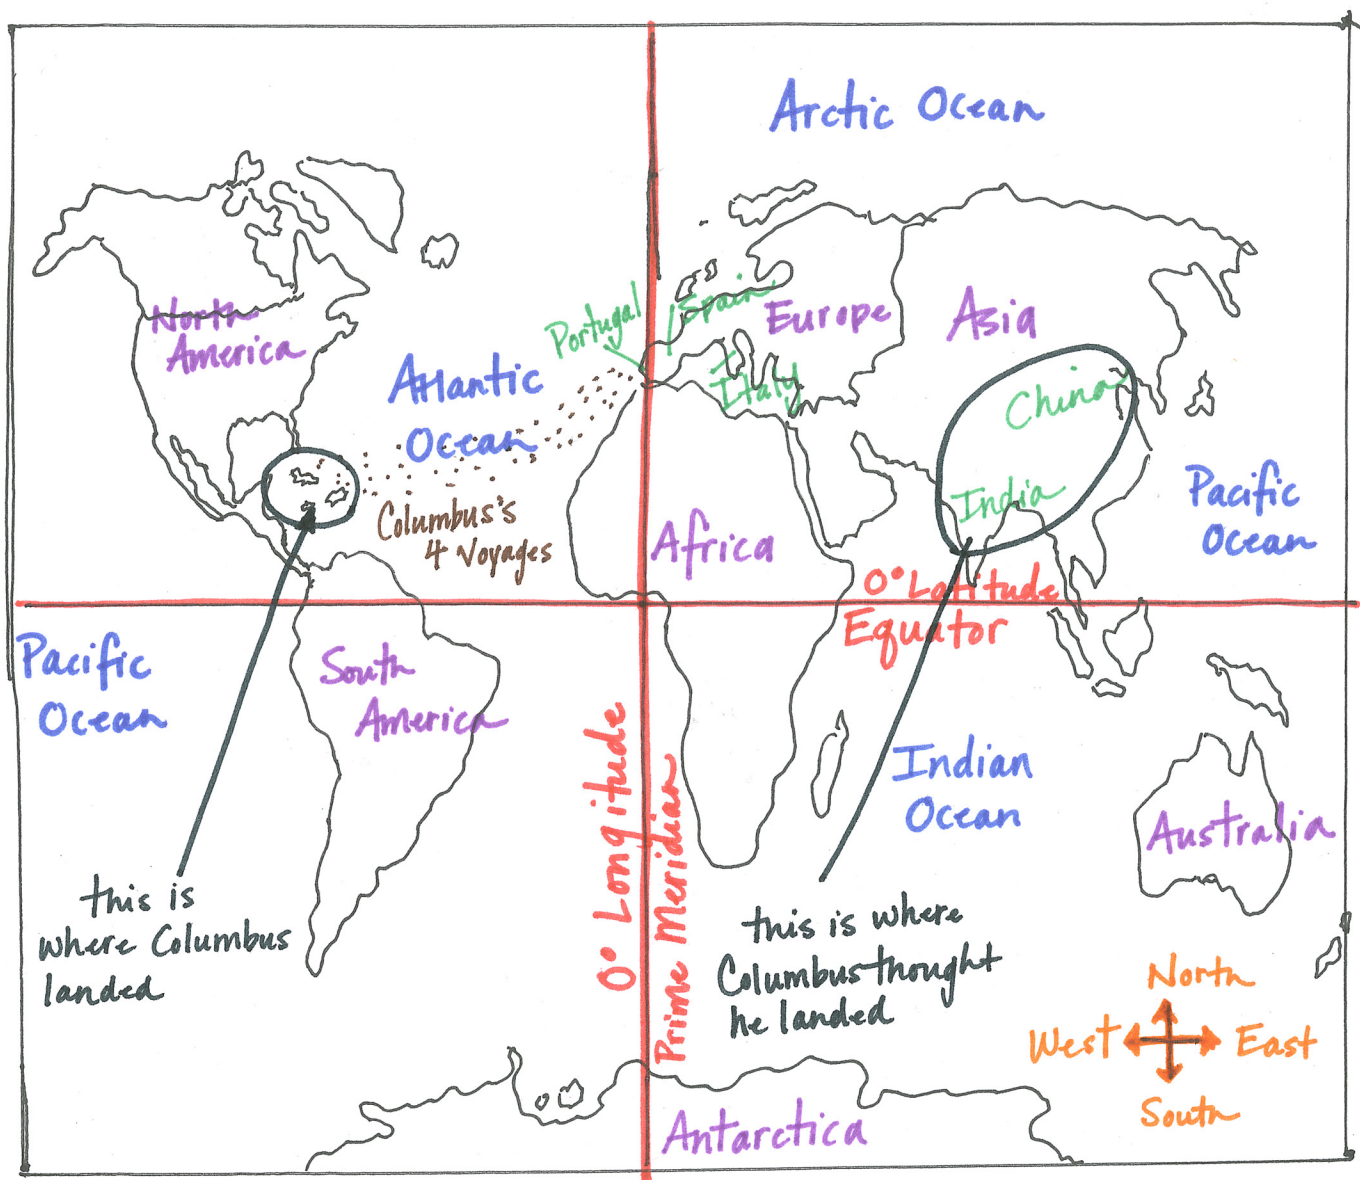 Arctic Ocean
North
America
Atlantic
Ocean
Portugal
Spain
Italy
Europe
Asia
China
India
Pacific
Ocean
Columbus's
4 Voyages
Africa
0° Latitude
Equator
Pacific
Ocean
South
America
0° Longitude
Prime Meridian
Indian
Ocean
Australia
this is
where Columbus
landed
this is where
Columbus thought
he landed
North
West
East
South
Antarctica